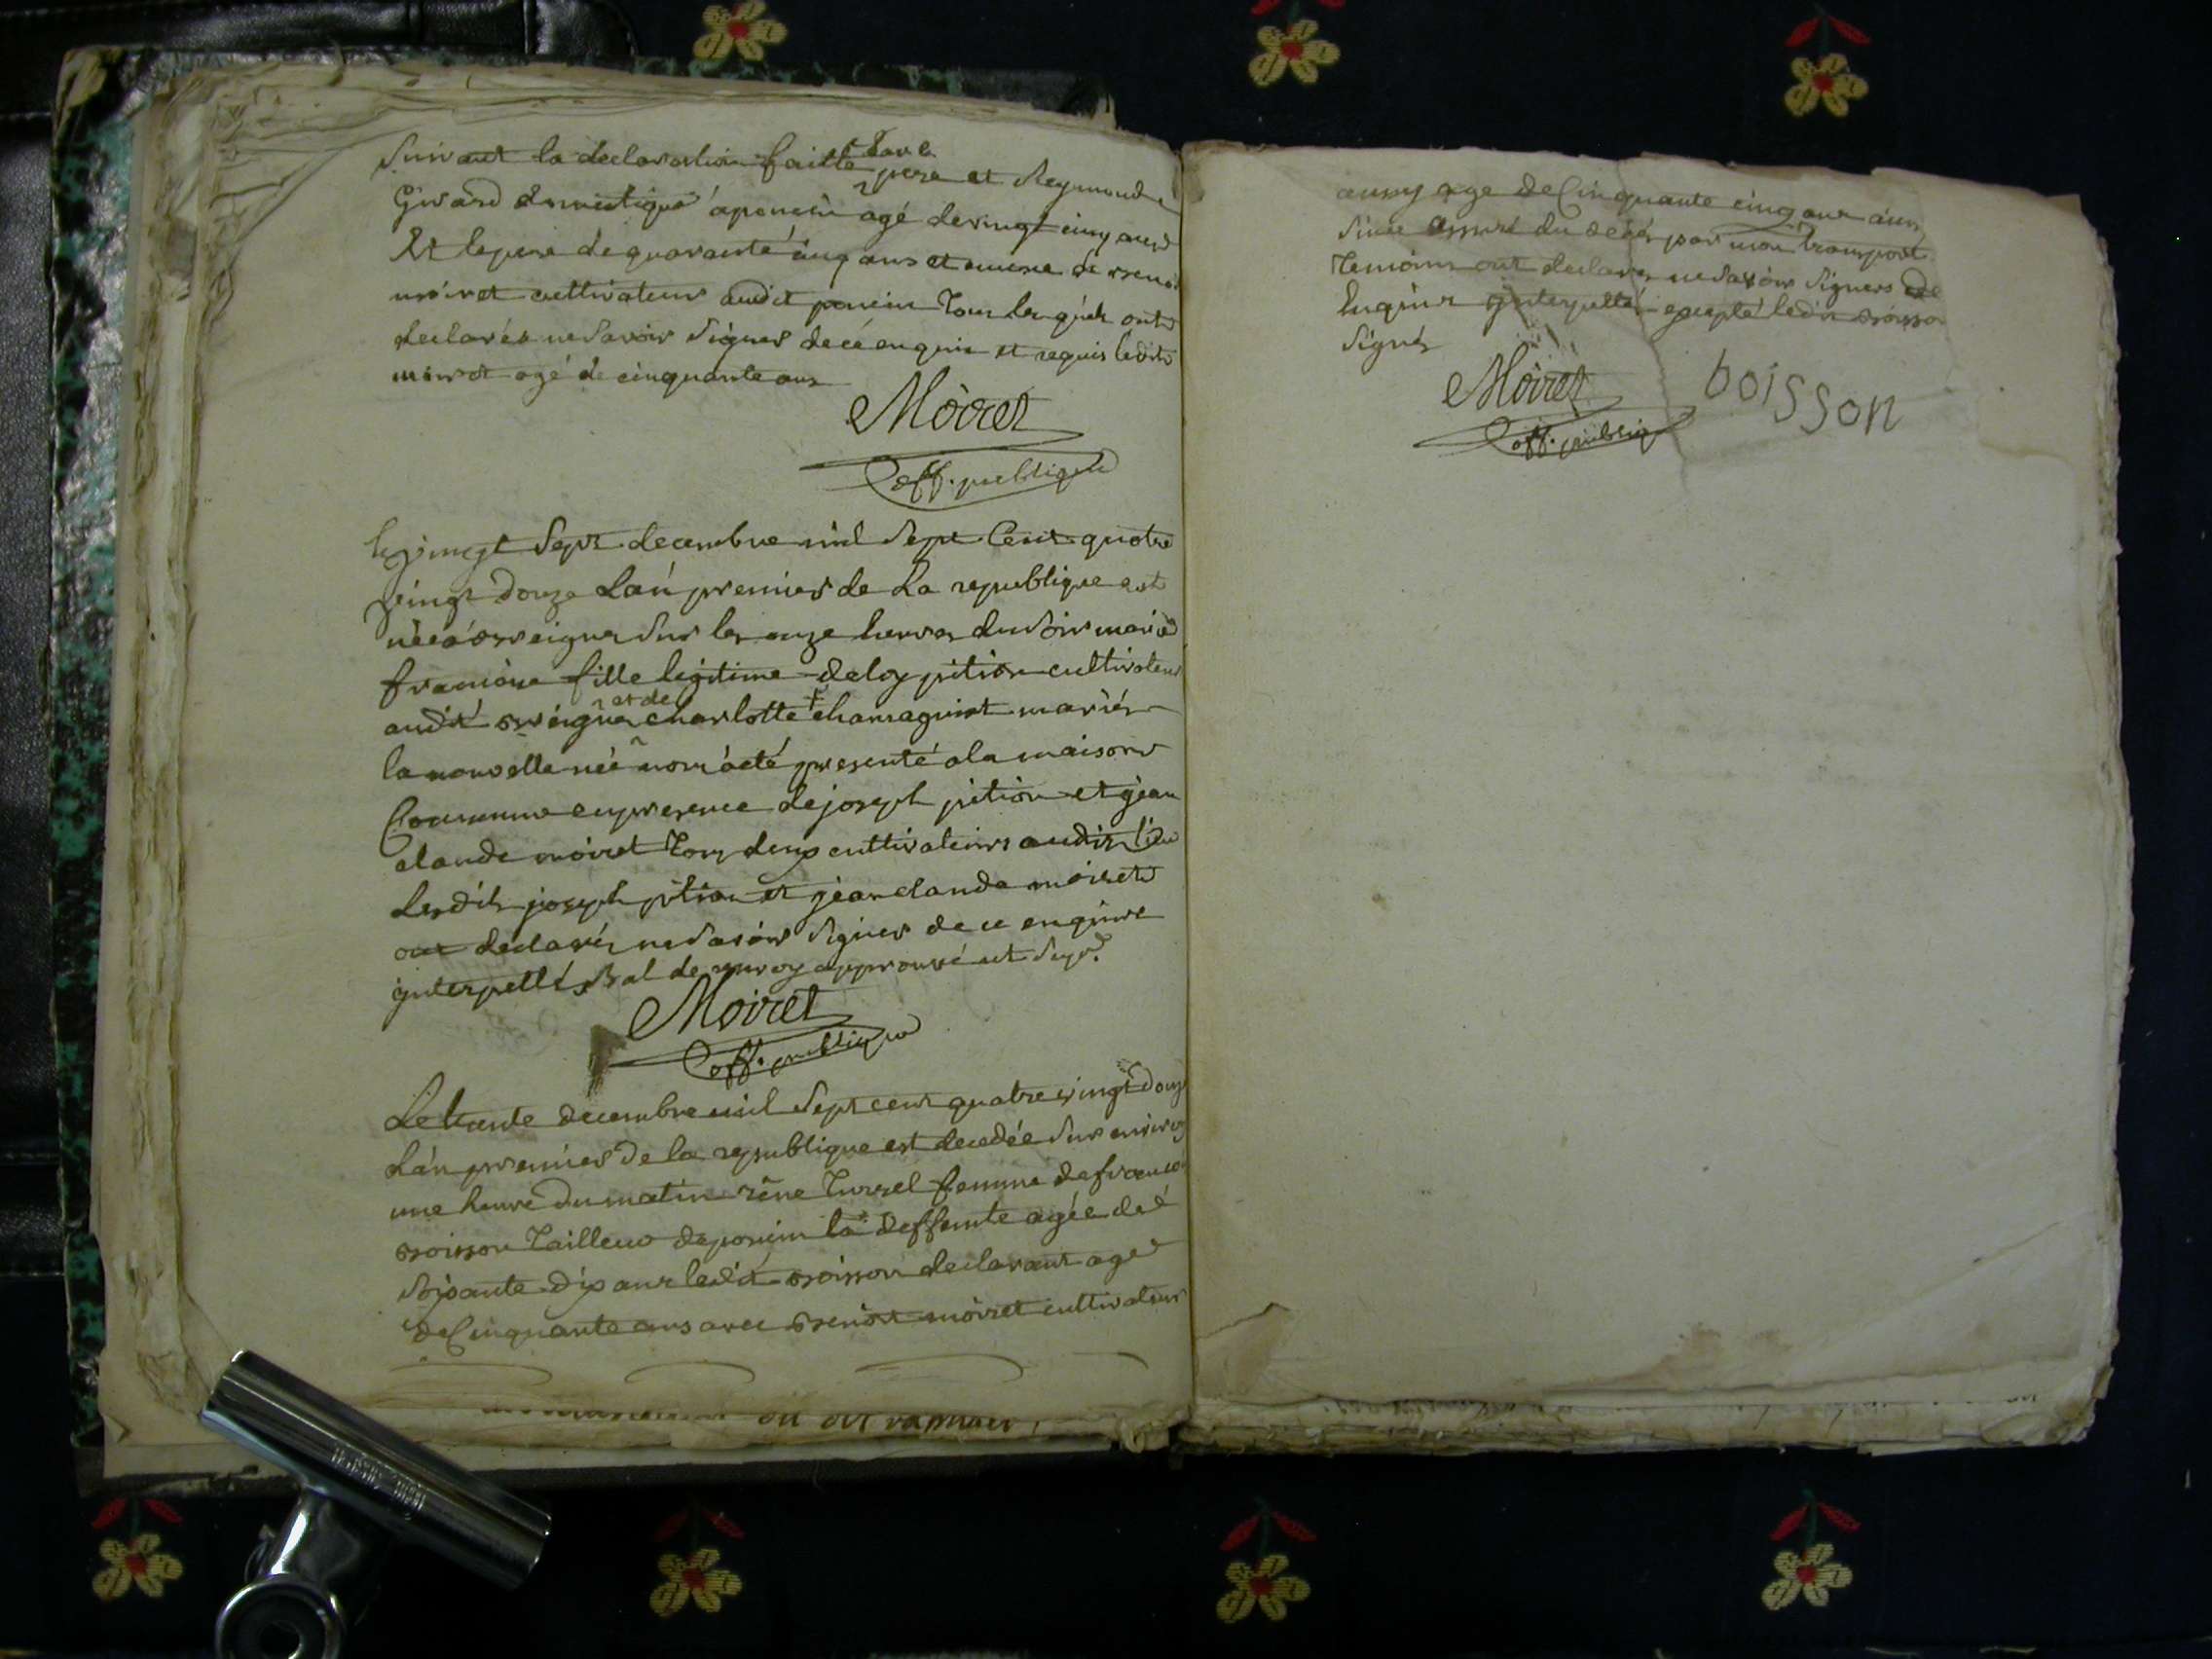 Suivant la declaration faitte par le
pere et Reymond
Girard domestique a poncin agé de vingt cinq ans
Et le pere de quarante cinq ans et encore de benoit
moiret cultivateur audit poncin tous lesquels ont
declarés ne savoir signer de ce enquis et requis ledit
moiret agé de cinquante ans
Moiret
off. publique
le vingt Sept decembre mil Sept Cent quatre
vingt douze Lan premier de La republique est
née a breigne sur les onze heures du soir marie
francoise fille legitime deloy pition cultivateur
audit breigne et de charlotte chamaguiot mariés
la nouvelle née nous a eté presenté a la maison
Commune en presence de joseph pition et jean
claude moiret tous deux cultivateurs audit lieu
Lesdits joseph pition et jean claude moiret
ont declarés ne savoir signer de ce enquire
interpellés bal de renvoy approuvé
Moiret
off. publique
Le trante decembre mil Sept cent quatre vingt douze
Lan premier de la republique est decedée sur environ
une heure du matin rêne Turrel femme de francois
boisson Tailleur de poncin la deffunte agée de
Soixante dix ans ledit boisson declarant agé
de Cinquante ans avec benoit moiret cultivateur
aussy age de Cinquante cinq ans
assuré du decés par mon transport
temoins ont declarés ne savoir signers de
Enquire interpellés excepté ledit boisson
Signé
Moiret
off. publiq
boisson